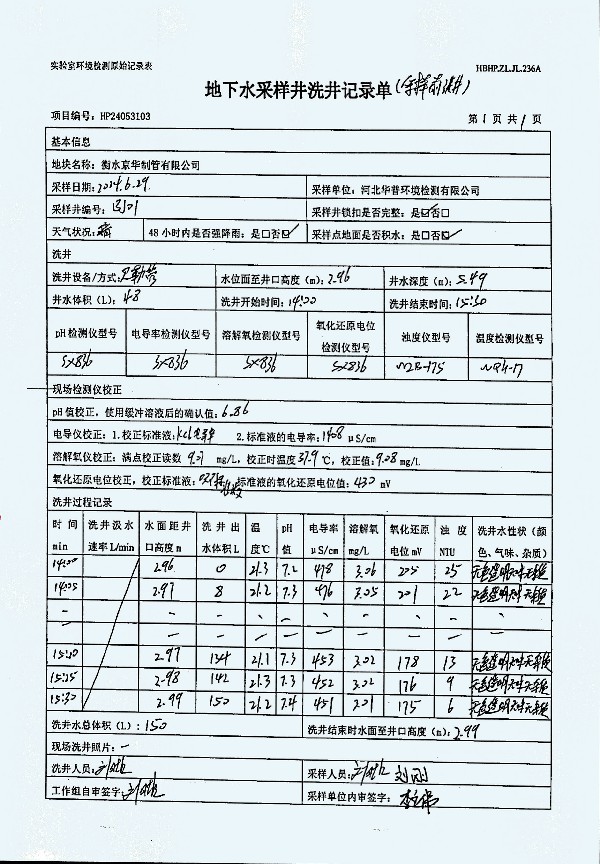 实验室环境检测原始记录表
HBHP.ZL.JL.236A
地下水采样井洗井记录单(采样前洗井)
项目编号：HP24053103
第1页 共1页
基本信息
地块名称：衡水京华制管有限公司
采样日期：2024.6.29.
采样单位：河北华普环境检测有限公司
采样井编号：
采样井锁扣是否完整：是☑否□
天气状况：晴
48小时内是否强降雨：是□否☑
采样点地面是否积水：是□否☑
洗井
洗井设备/方式：贝勒管
水位面至井口高度（m）：2.96
井水深度（m）：5.49
井水体积（L）：48
洗井开始时间：14:00
洗井结束时间：15:30
pH检测仪型号 电导率检测仪型号 溶解氧检测仪型号 氧化还原电位检测仪型号 浊度仪型号 温度检测仪型号
SX836 SX836 SX836 SX836
现场检测仪校正
pH值校正，使用缓冲溶液后的确认值：6.86
电导仪校正：1.校正标准液：KCl 2.标准液的电导率：1408 μS/cm
溶解氧仪校正：满点校正读数 9.07 mg/L，校正时温度 ℃，校正值：9.08 mg/L
氧化还原电位校正，校正标准液： 标准液的氧化还原电位值：430 mV
洗井过程记录
时间min 洗井汲水速率L/min 水面距井口高度m 洗井出水体积L 温度℃ pH值 电导率μS/cm 溶解氧mg/L 氧化还原电位mV 浊度NTU 洗井水性状（颜色、气味、杂质）
14:00 2.96 0 21.3 7.2 478 3.06 205 25 无色透明无味无杂质
14:05 2.97 8 21.2 7.3 476 3.05 201 22 无色透明无味无杂质
- - - - - - - - - -
- - - - - - - - - -
15:20 2.97 134 21.1 7.3 453 3.02 178 13 无色透明无味无杂质
15:25 2.98 142 21.3 7.3 452 3.02 176 9 无色透明无味无杂质
15:30 2.99 150 21.2 7.4 451 3.01 175 6 无色透明无味无杂质
洗井水总体积（L）：150
洗井结束时水面至井口高度（m）：2.99
现场洗井照片：-
洗井人员：
采样人员： 刘刚
工作组自审签字：
采样单位内审签字：